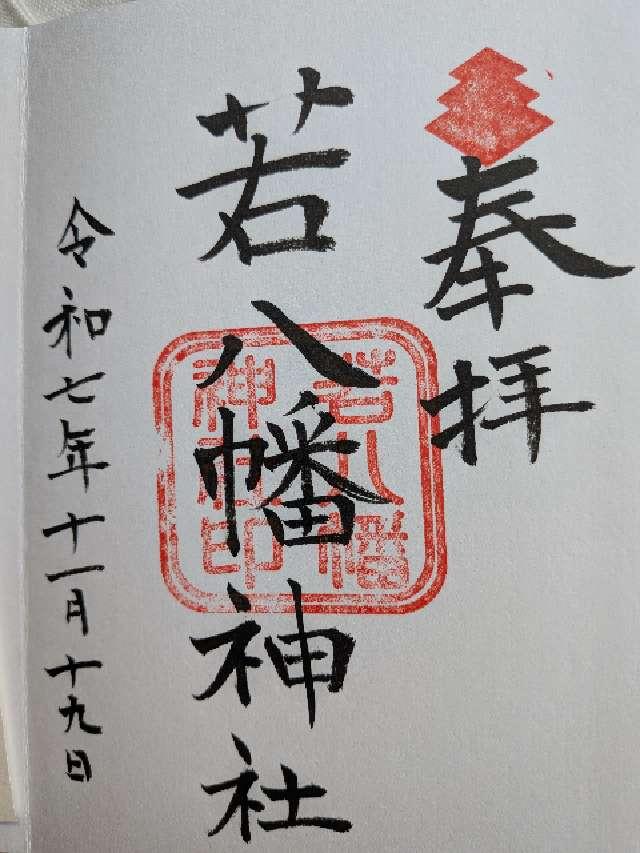 奉拝
若八幡神社
若八幡
神社印
令和七年十一月十九日